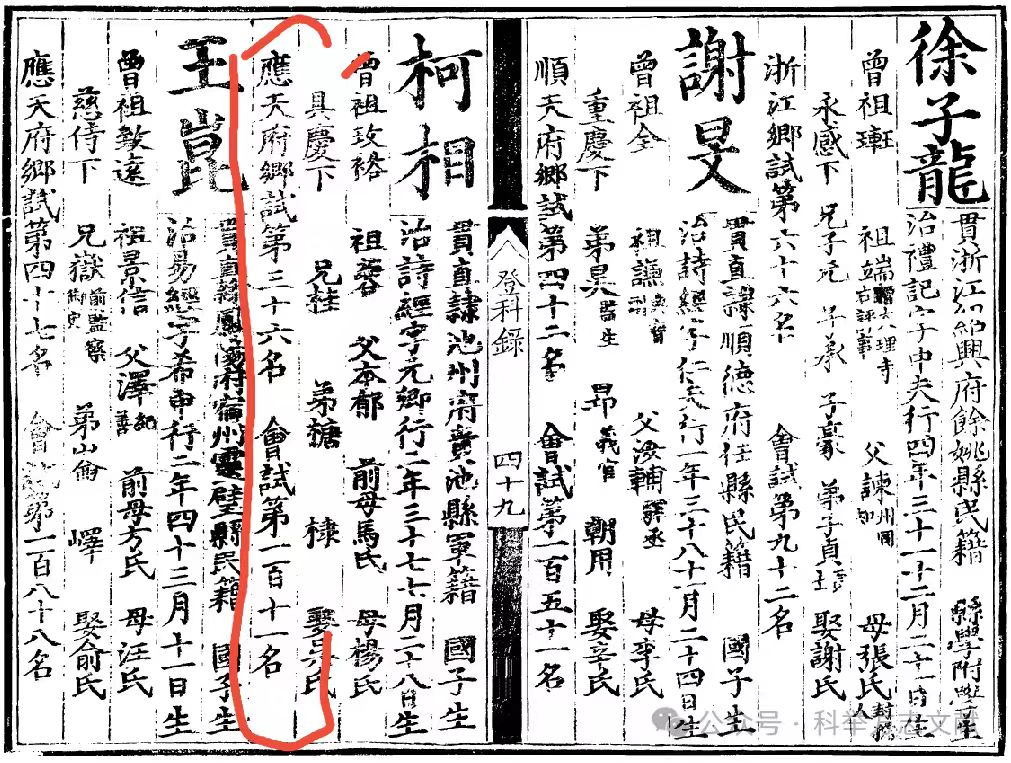 徐子龍
貫浙江紹興府餘姚縣民籍 縣學附學生
治禮記字中夫行四年三十一十二月二十一日生
曾祖 祖端 贈大理寺右評事 父諫 知州 母張氏 封 人
永感下 兄子元 子承 子豪 弟子貞 娶謝氏
浙江鄉試第六十六名 會試第九十二名
謝旻
貫直隸順德府任縣民籍 國子生
治詩經字仁 行一年三十八十一月二十四日生
曾祖全 祖謙 父 輔 驛丞 母李氏
重慶下 弟昊 醫生 昂 義官 朝用 娶辛氏
順天府鄉試第四十二名 會試第一百五十一名
登科錄
四十九
柯相
貫直隸池州府貴池縣軍籍 國子生
治詩經字元卿行二年三十七七月二十八日生
曾祖玫裕 祖 父本郁 前母馬氏 母楊氏
具慶下 兄桂 弟 棣 娶吳氏
應天府鄉試第三十六名 會試第一百十一名
王崑
貫直隸鳳陽府宿州靈壁縣民籍 國子生
治易經字希申行二年四十三月十一日生
曾祖敏遠 祖景信 父澤 知縣 前母方氏 母汪氏
慈侍下 兄嶽 前監察御史 弟崙 嶧 娶俞氏
應天府鄉試第四十七名 會試第一百八十八名
公众号·科举 志文献